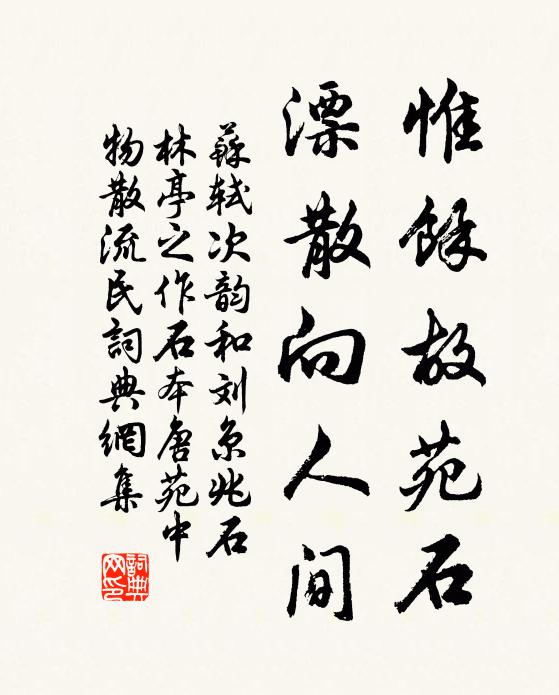 惟餘故苑石
漂散向人間
蘇軾次韵和刘京兆石
林亭之作石本唐苑中
物散流民詞典網集
詞典网印